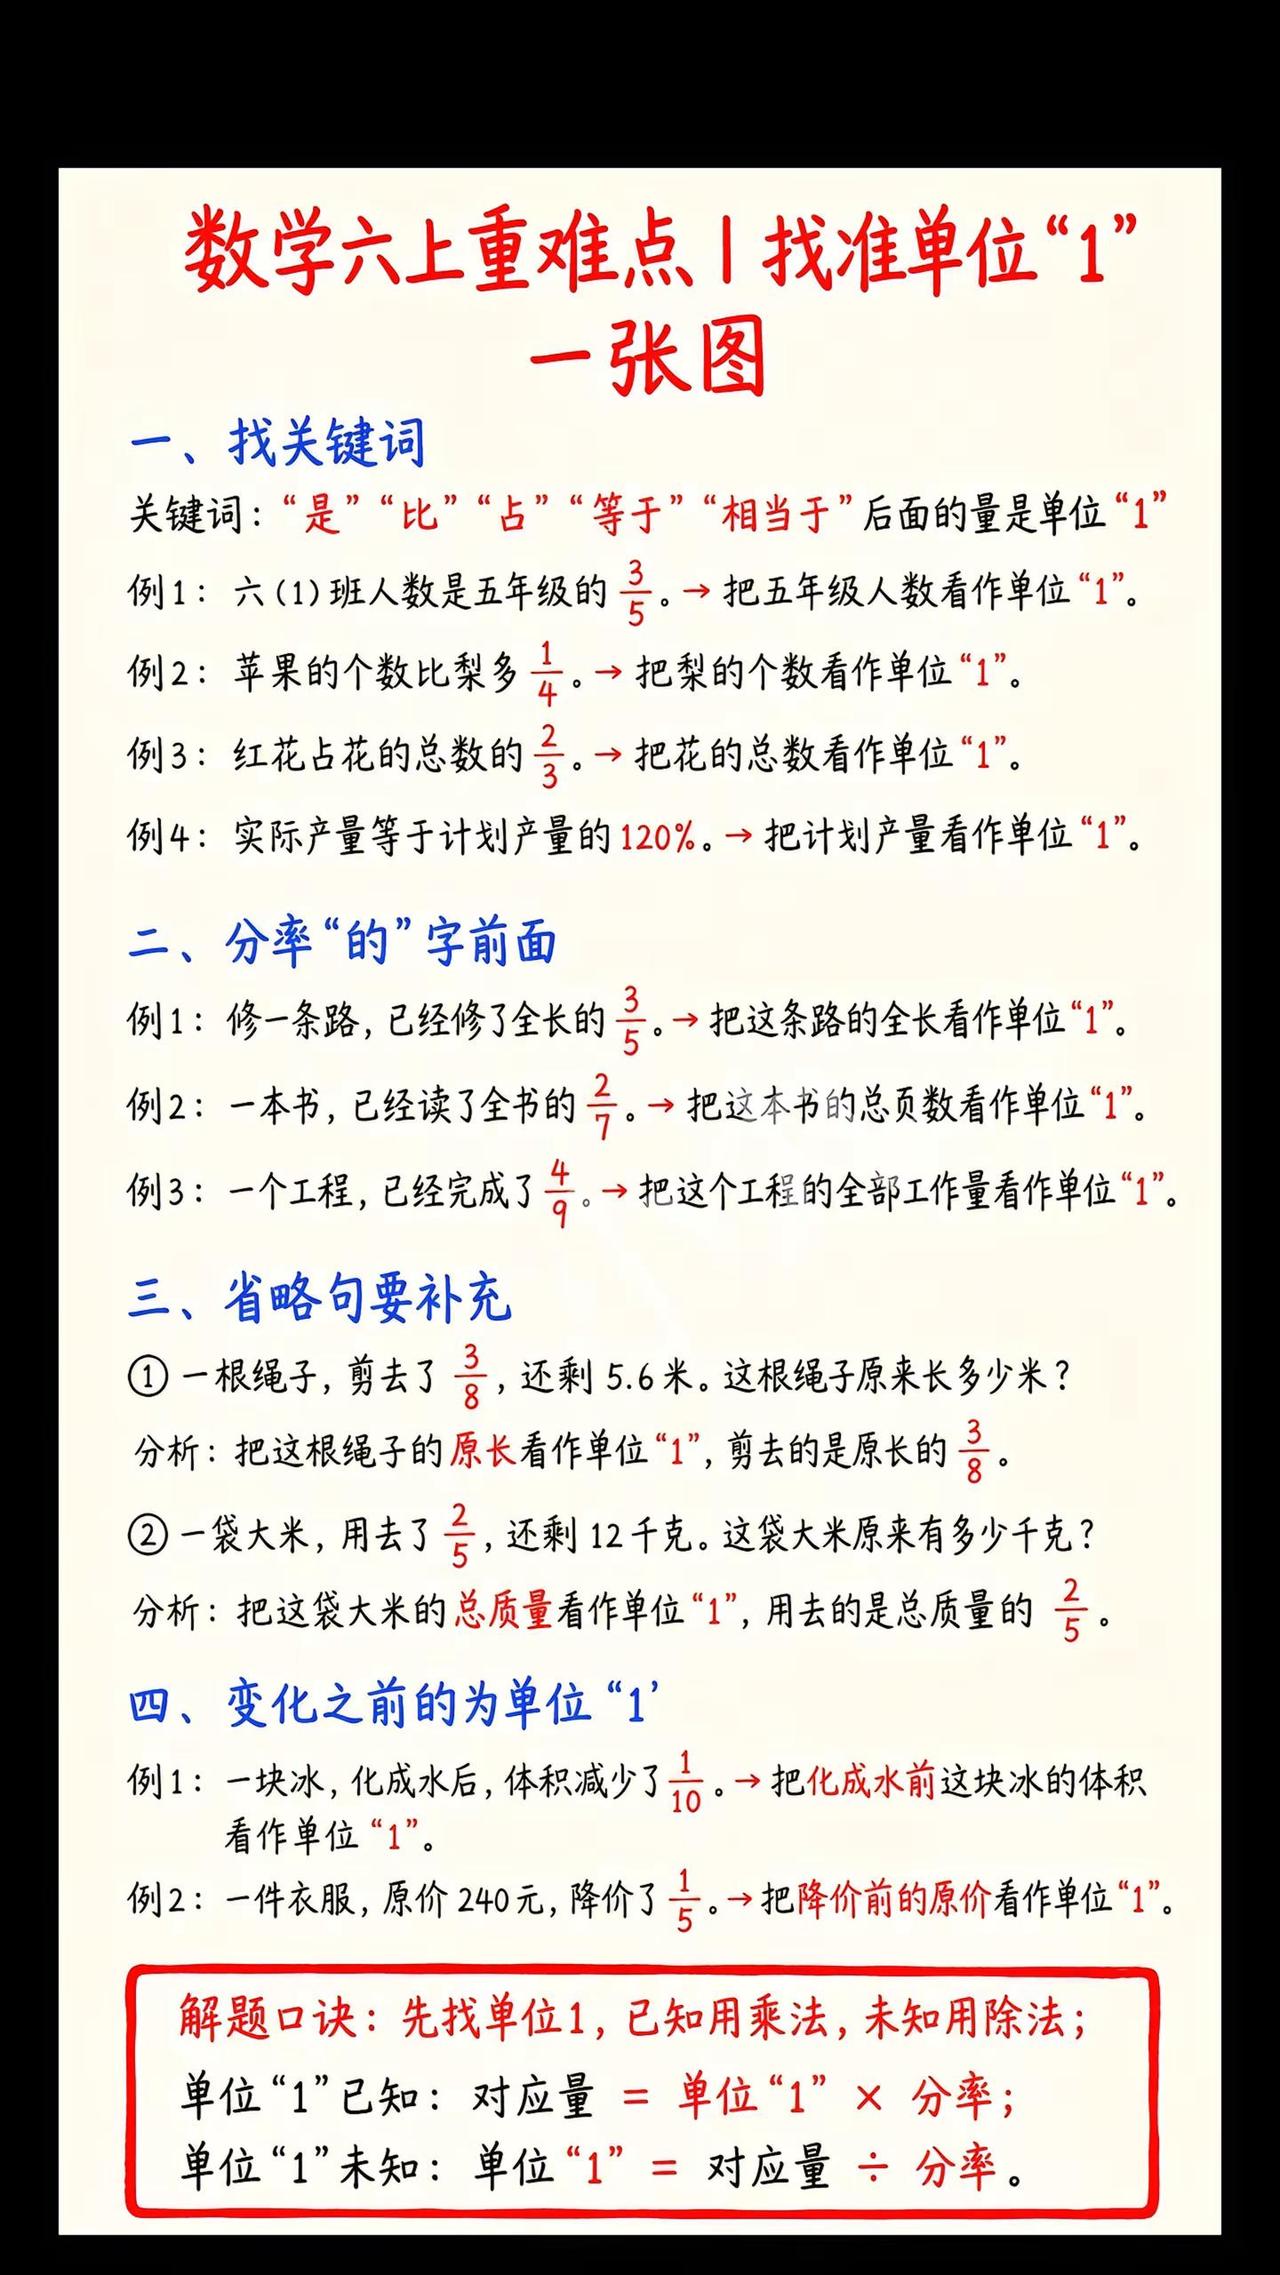 数学六上重难点|找准单位“1”
一张图
一、找关键词
关键词：“是”“比”“占”“等于”“相当于”后面的量是单位“1”
例1：六(1)班人数是五年级的3/5。→把五年级人数看作单位“1”。
例2：苹果的个数比梨多1/4。→把梨的个数看作单位“1”。
例3：红花占花的总数的2/3。→把花的总数看作单位“1”。
例4：实际产量等于计划产量的120%。→把计划产量看作单位“1”。
二、分率“的”字前面
例1：修一条路，已经修了全长的3/5。→把这条路的全长看作单位“1”。
例2：一本书，已经读了全书的2/7。→把这本书的总页数看作单位“1”。
例3：一个工程，已经完成了4/9。→把这个工程的全部工作量看作单位“1”。
三、省略句要补充
①一根绳子，剪去了3/8，还剩5.6米。这根绳子原来长多少米？
分析：把这根绳子的原长看作单位“1”，剪去的是原长的3/8。
②一袋大米，用去了2/5，还剩12千克。这袋大米原来有多少千克？
分析：把这袋大米的总质量看作单位“1”，用去的是总质量的2/5。
四、变化之前的为单位“1’
例1：一块冰，化成水后，体积减少了1/10。→把化成水前这块冰的体积
看作单位“1”。
例2：一件衣服，原价240元，降价了1/5。→把降价前的原价看作单位“1”。
解题口诀：先找单位1，已知用乘法，未知用除法；
单位“1”已知：对应量=单位“1”×分率；
单位“1”未知：单位“1”=对应量÷分率。